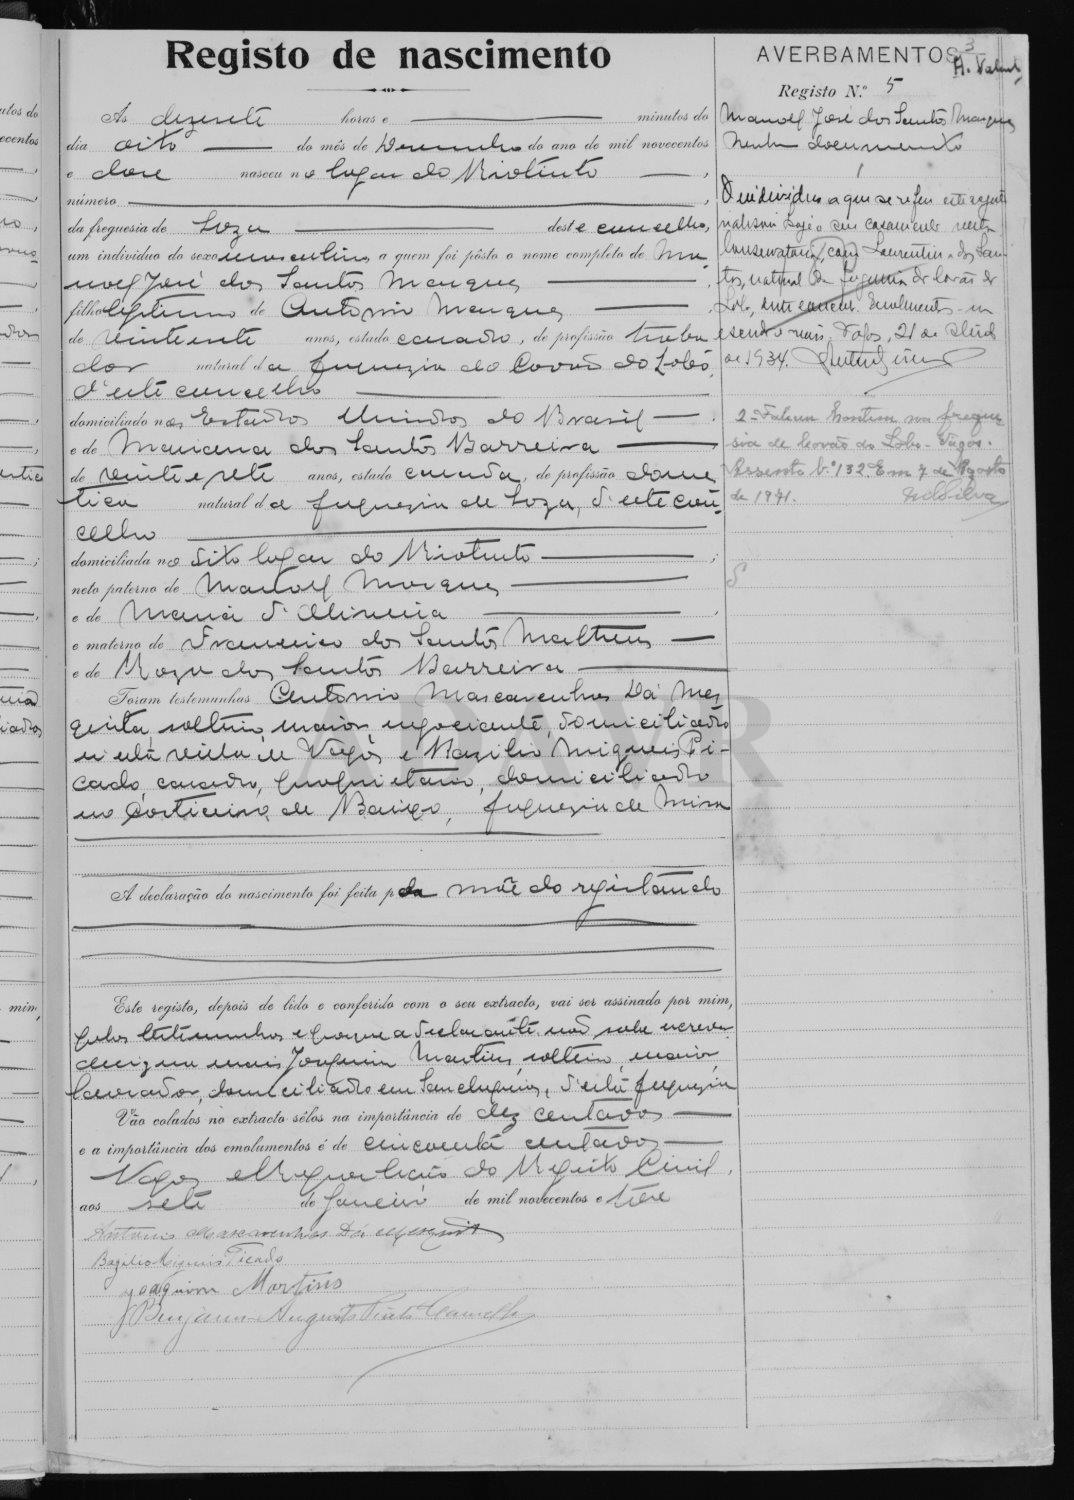 Registo de nascimento
Ás dezesete horas e minutos do
dia oito do mês de Dezembro do ano de mil novecentos
e doze nasceu no logar do Riotinto
número
da freguesia de Soza deste concelho,
um individuo do sexo masculino, a quem foi pôsto o nome completo de Ma-
noel José dos Santos Marques
filho legitimo de Antonio Marques
de vinte e sete anos, estado casado, de profissão traba-
dor natural da freguezia do Covão do Lobo,
d'este concelho
domiciliado nos Estados Unidos do Brasil
e de Mariana dos Santos Barreira
de vinte e sete anos, estado casada, de profissão domes-
tica natural da freguezia de Soza, d'este con-
celho
domiciliada no dito logar do Riotinto
neto paterno de Manoel Marques
e de Maria d'Oliveira
e materno de Francisco dos Santos Matheus
e de Roza dos Santos Barreira
Foram testemunhas Antonio Mascarenhas Dá Mes-
quita, solteiro, maior, negociante, domiciliado
n'esta villa de Vagos e Bazilio Migueis Pi-
cado, casado, proprietario, domiciliado
no Corticeiro de Baixo, freguezia de Mira
A declaração do nascimento foi feita pela mãe do registando
Este registo, depois de lido e conferido com o seu extracto, vai ser assinado por mim,
pelas testemunhas e porque a declarante não sabe escrever
assigna mais Joaquim Martins, solteiro, maior,
lavrador, domiciliado em d'esta freguezia
Vão colados no extracto sêlos na importância de dez centavos
e a importância dos emolumentos é de cincoenta centavos
Vagos e Repartição do Registo Civil,
aos sete de Janeiro de mil novecentos e treze
Antonio Mascarenhas Dá Mesquita
Bazilio Migueis Picado
Joaquim Martins
Benjamin Augusto
AVERBAMENTOS
3
Registo N.º 5
Manoel José dos Santos Marques
Nenhum documento
1
O individuo a que se refere este registo
realisou hoje o seu casamento nesta
Conservatoria, com Laurentina dos San-
tos, natural da freguezia de Covão do
Lobo, deste concelho.
Vagos, 21 de Abril
de 1934.
2- Faleceu hontem na fregue-
sia de Covão do Lobo - Vagos.
Assento N.º 132. Em 7 de Agosto
de 1971.
ADAVR